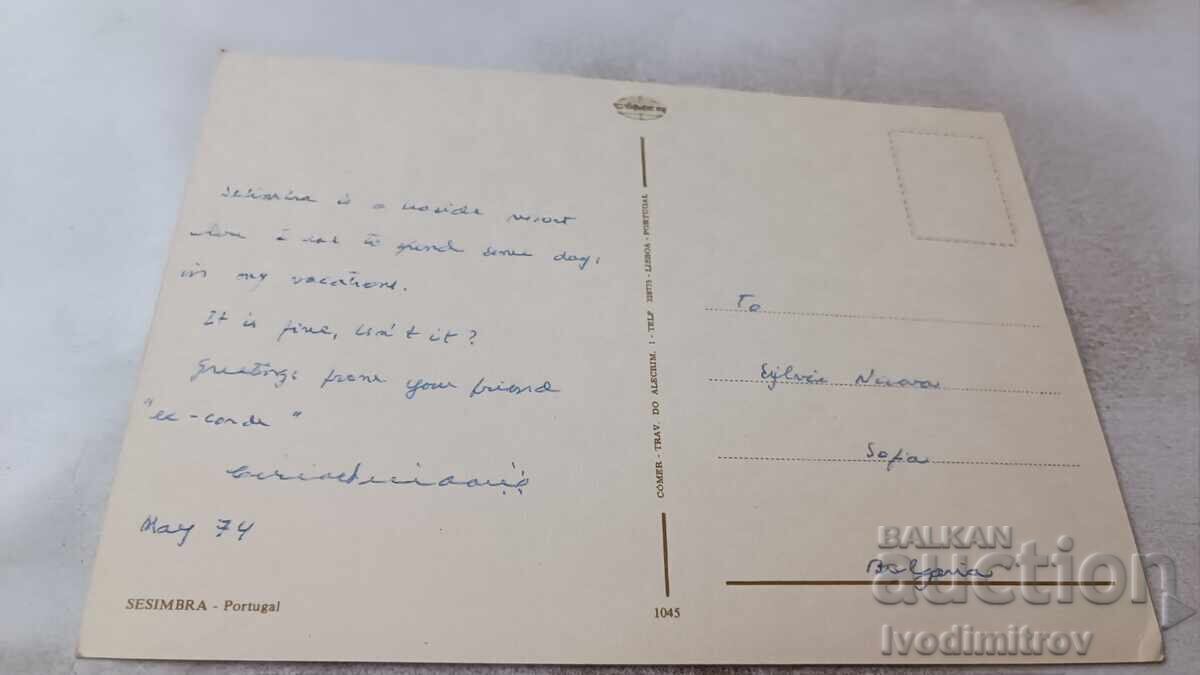 Sesimbra is a seaside resort
where I use to spend some days
in my vacations.
It is fine, isn't it?
Greetings from your friend
"ex-corde"
May 74
SESIMBRA - Portugal
COMER - TRAV. DO ALECRIM, 1 - TELF. 328775 - LISBOA - PORTUGAL
1045
To
Sylvia
Sofia
Bulgaria
BALKAN
auction
Ivodimitrov